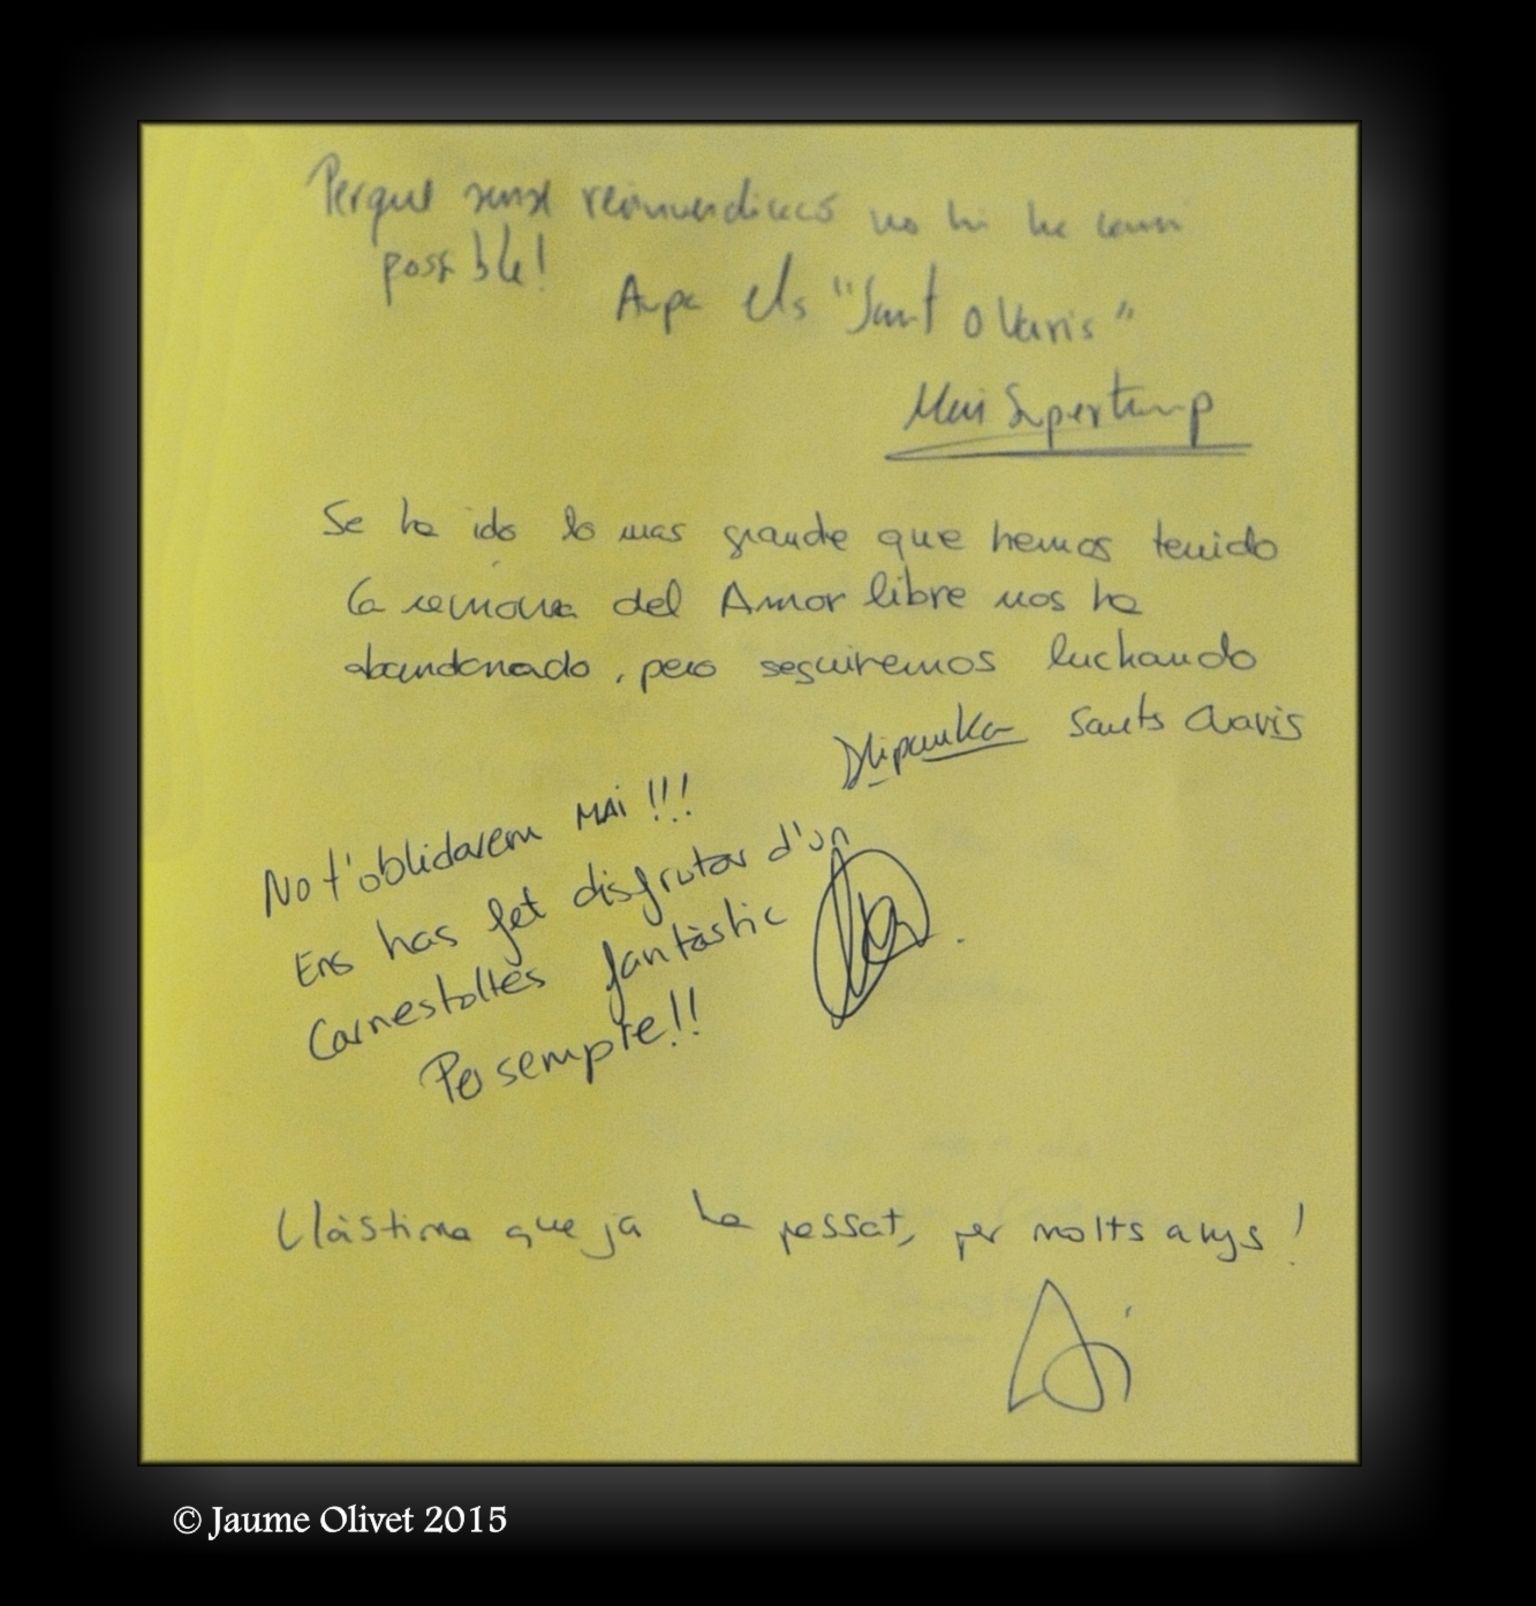 Perquè sense reinvindicació no hi ha camí
possible!
Aupa els "Sant Ovaris"
Mai Supertramp
Se ha ido lo mas grande que hemos tenido
la reinona del Amor libre nos ha
abandonado, pero seguiremos luchando
Sants Ovaris
No t'oblidarem MAI !!!
Ens has fet disfrutar d'un
Carnestoltes fantàstic
Per sempre!!
Llàstima que ja ha passat, per molts anys!
© Jaume Olivet 2015